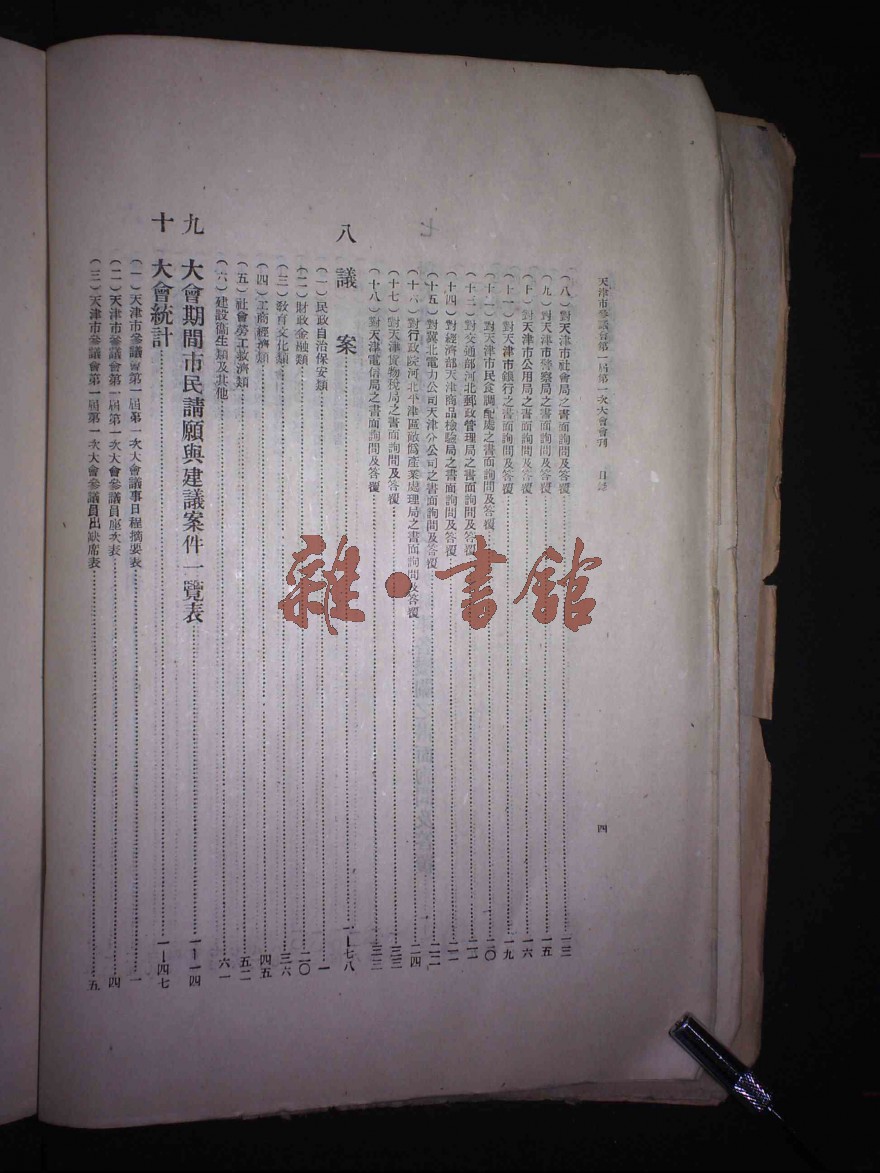 天津市參議會第一屆第一次大會會刊　目錄　四
（八）對天津市社會局之書面詢問及答覆……一三
（九）對天津市警察局之書面詢問及答覆……一五
（十）對天津市公用局之書面詢問及答覆……一六
（十一）對天津市銀行之書面詢問及答覆……一九
（十二）對天津市民食調配處之書面詢問及答覆……二〇
（十三）對交通部河北郵政管理局之書面詢問及答覆……二一
（十四）對經濟部天津商品檢驗局之書面詢問及答覆……二二
（十五）對冀北電力公司天津分公司之書面詢問及答覆……二二
（十六）對行政院河北平津區敵僞產業處理局之書面詢問及答覆……二四
（十七）對天津貨物稅局之書面詢問及答覆……三三
（十八）對天津電信局之書面詢問及答覆……三三
八　議　案……一－七八
（一）民政自治保安類……一
（二）財政金融類……二〇
（三）教育文化類……三六
（四）工商經濟類……四五
（五）社會勞工救濟類……五二
（六）建設衞生類及其他……六一
九　大會期間市民請願與建議案件一覽表……一－一四
十　大會統計……一－四七
（一）天津市參議會第一屆第一次大會議事日程摘要表……一
（二）天津市參議會第一屆第一次大會參議員座次表……四
（三）天津市參議會第一屆第一次大會參議員出缺席表……五
雜·書館